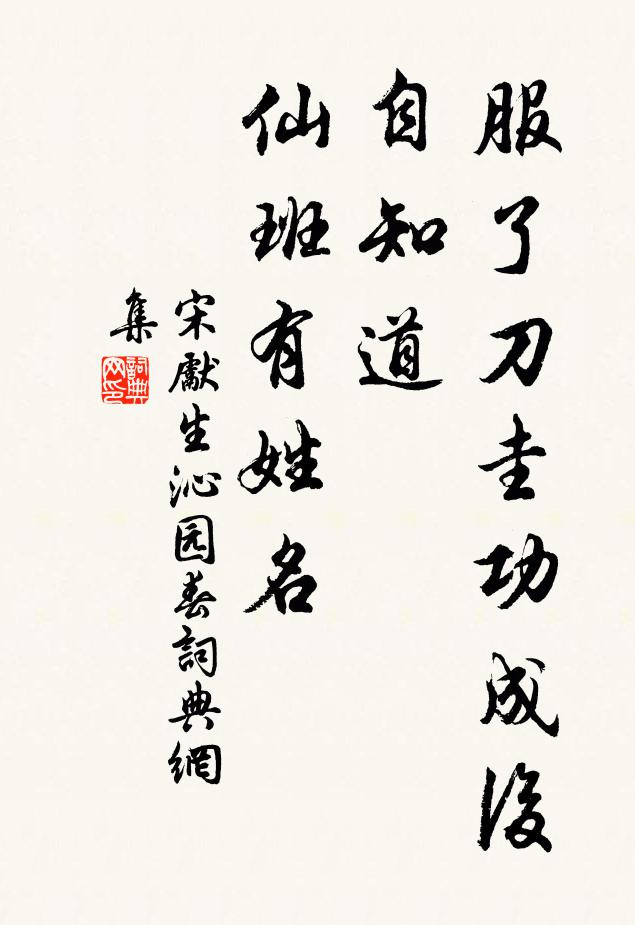 服了刀圭功成後
自知道
仙班有姓名
宋獻生沁园春詞典網
集
詞典
网印